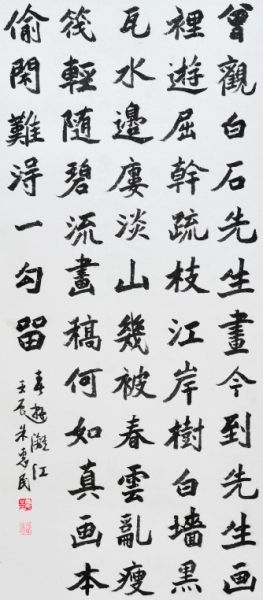 曾觀白石先生畫今到先生画
裡遊屈幹疏枝江岸樹白墻黑
瓦水邊廔淡山幾被春雲亂瘦
筏輕隨碧流畫稿何如真画本
偷閑難淂一勾留
春遊灕江
壬辰朱惠民